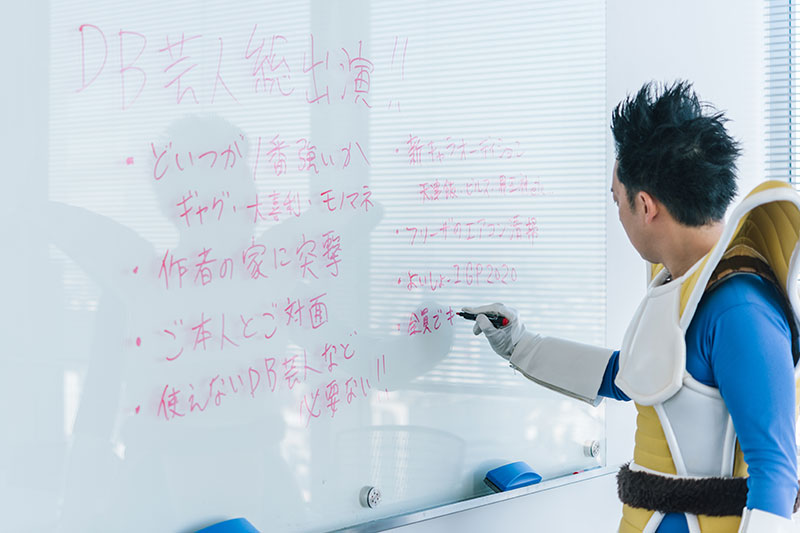 DB芸人総出演!!
・どいつが1番強いか
ギャグ・大喜利・モノマネ
・作者の家に突撃
・ご本人とご対面
・使えないDB芸人など
必要ない!!
・新キャラオーディション
・フリーザのエアコン
・よいしょ-1GP2020
・全員でキ